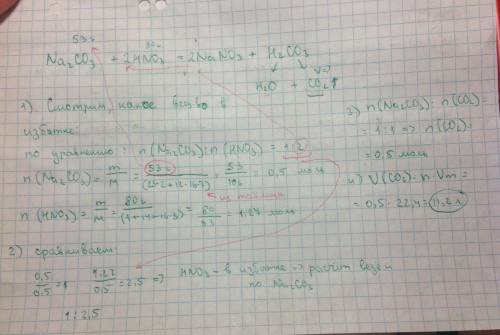 53г 80г
Na₂CO₃ + 2HNO₃ = 2NaNO₃ + H₂CO₃
H₂O + CO₂↑
1) Смотрим, какое в-во в
избытке:
по уравнению: n(Na₂CO₃):n(HNO₃) = 1:2
n(Na₂CO₃) = m/M = 53г/(23·2+12+16·3) = 53/106 = 0,5 моль
из таблицы
n(HNO₃) = m/M = 80г/(1+14+16·3) = 80/63 = 1,27 моль
2) сравниваем
0,5/0,5 = 1 1,27/0,5 = 2,5 => HNO₃ - в избытке => расчёт ведём
по Na₂CO₃
1:2,5
3) n(Na₂CO₃):n(CO₂)=
= 1:1 => n(CO₂)=
= 0,5 моль
4) V(CO₂) = n·Vm =
= 0,5·22,4 = 11,2л